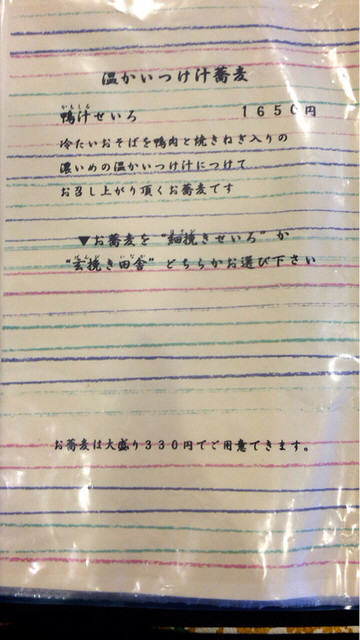 温かいつけ汁蕎麦
鴨汁せいろ １６５０円
冷たいおそばを鴨肉と焼きねぎ入りの
濃いめの温かいつけ汁につけて
お召し上がり頂くお蕎麦です
▼お蕎麦を“細挽きせいろ”か
“玄挽き田舎”どちらかお選び下さい
お蕎麦は大盛り３３０円でご用意できます。